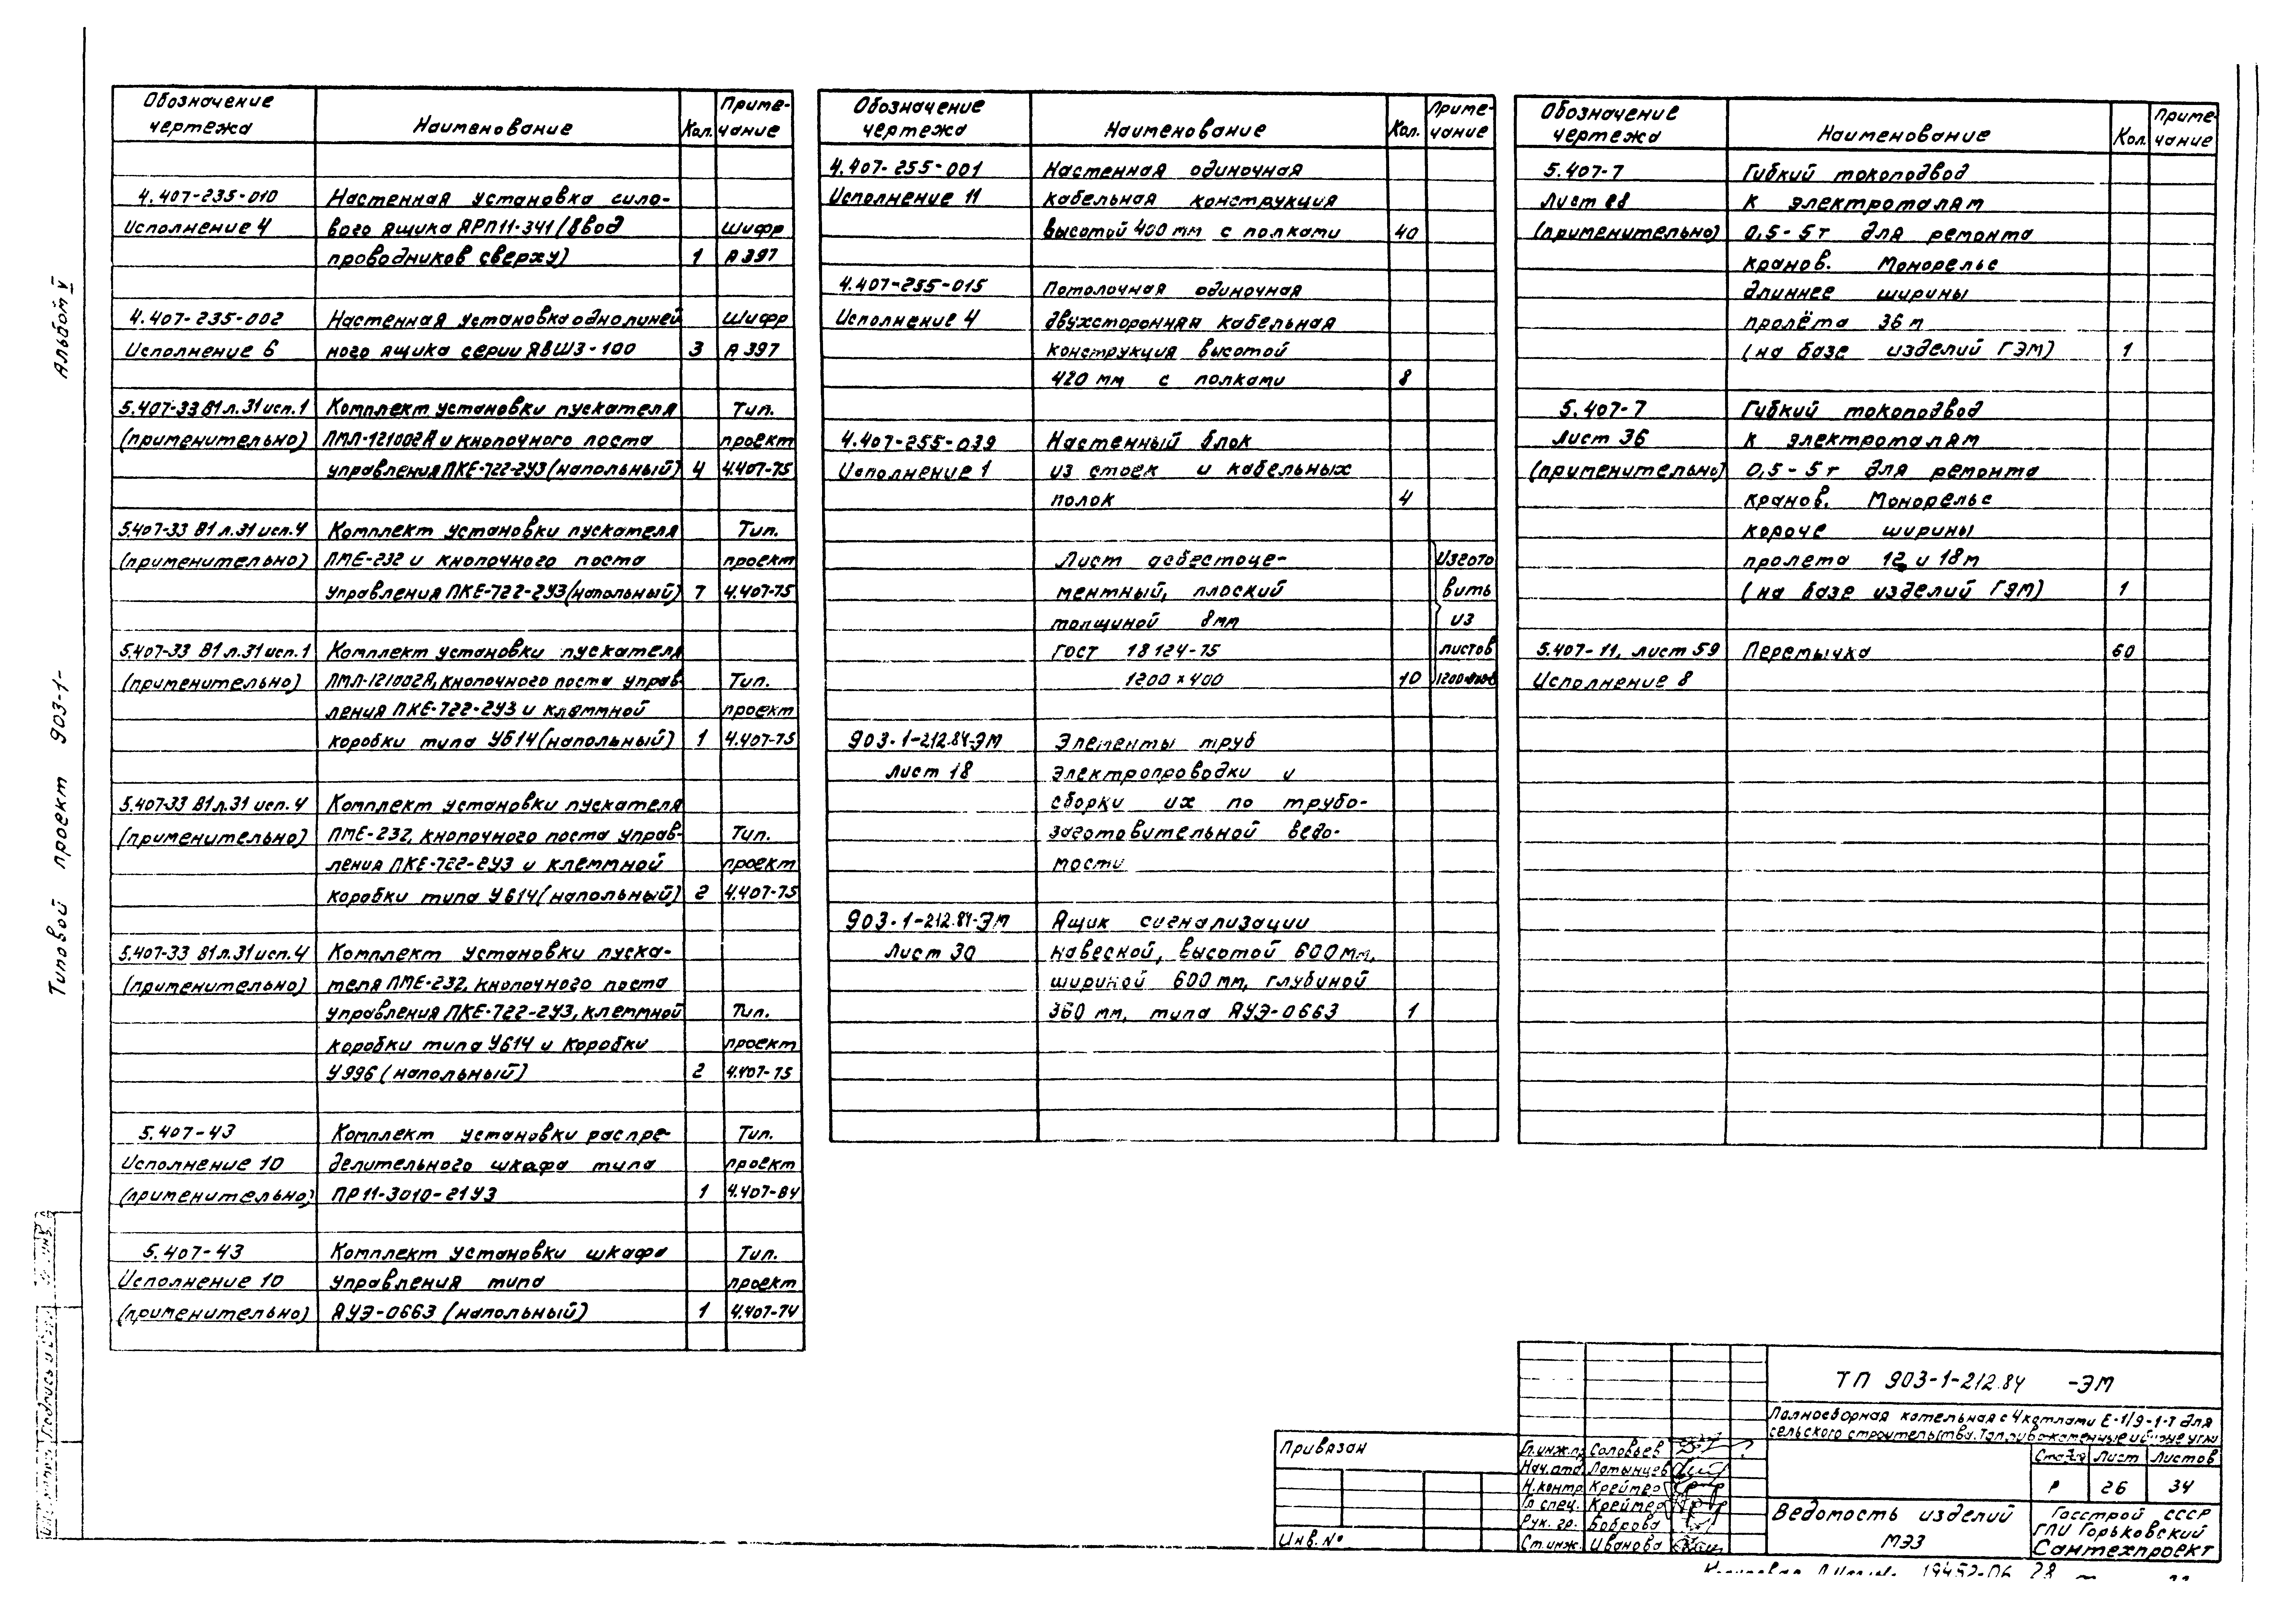 Альбом V
Типовой проект 903-1-
Обозначение чертежа Наименование Кол. Приме-
чание
4.407-235-010 Настенная установка сило-
Исполнение 4 вого ящика ЯРП11-341 /ввод Шифр
проводников сверху) 1 А397
4.407-235-002 Настенная установка однолиней Шифр
Исполнение 6 ного ящика серии ЯВШ3-100 3 А397
5.407-33 В1 л.31 исп.1 Комплект установки пускателя Тип.
(применительно) ПМЛ-121002А и кнопочного поста проект
управления ПКЕ-722-2У3 (напольный) 4 4.407-75
5.407-33 В1 л.31 исп.4 Комплект установки пускателя Тип.
(применительно) ПМЕ-232 и кнопочного поста проект
управления ПКЕ-722-2У3 (напольный) 7 4.407-75
5.407-33 В1 л.31 исп.1 Комплект установки пускателя
(применительно) ПМЛ-121002А, кнопочного поста управ- Тип.
ления ПКЕ-722-2У3 и клеммной проект
коробки типа У614 (напольный) 1 4.407-75
5.407-33 В1 л.31 исп.4 Комплект установки пускателя
(применительно) ПМЕ-232, кнопочного поста управ- Тип.
ления ПКЕ-722-2У3 и клеммной проект
коробки типа У614 (напольный) 2 4.407-75
5.407-33 В1 л.31 исп.4 Комплект установки пуска-
(применительно) теля ПМЕ-232, кнопочного поста
управления ПКЕ-722-2У3, клеммной Тип.
коробки типа У614 и коробки проект
У996 (напольный) 2 4.407-75
5.407-43 Комплект установки распре- Тип.
Исполнение 10 делительного шкафа типа проект
(применительно) ПР11-3010-21У3 1 4.407-84
5.407-43 Комплект установки шкафа Тип.
Исполнение 10 управления типа проект
(применительно) ЯУЭ-0663 (напольный) 1 4.407-74
Обозначение чертежа Наименование Кол. Приме-
чание
4.407-255-001 Настенная одиночная
Исполнение 11 кабельная конструкция
высотой 400 мм с полками 40
4.407-255-015 Потолочная одиночная
Исполнение 4 двухсторонняя кабельная
конструкция высотой
420 мм с полками 8
4.407-255-039 Настенный блок
Исполнение 1 из стоек и кабельных
полок 4
Лист асбестоце- Изгото
ментный, плоский вить
толщиной 8мм из
гост 18124-75 листов
1200×400 10
903-1-212.84-ЭМ Элементы труб
Лист 18 электропроводки и
сборки их по трубо-
заготовительной ведо-
мости
903-1-212.84-ЭМ Ящик сигнализации
Лист 30 навесной, высотой 600мм,
шириной 600 мм, глубиной
360 мм, типа ЯУЭ-0663 1
Обозначение чертежа Наименование Кол. Приме-
чание
5.407-7 Гибкий токоподвод
Лист 28 к электроталям
(применительно) 0,5-5т для ремонта
кранов. Монорельс
длиннее ширины
пролёта 36 м
(на базе изделий ГЭМ) 1
5.407-7 Гибкий токоподвод
Лист 36 к электроталям
(применительно) 0,5-5т для ремонта
кранов. Монорельс
короче ширины
пролета 12 и 18м
(на базе изделий ГЭМ) 1
5.407-11, лист 59 Перемычка 60
Исполнение 8
Привязан
Инв.№
Гл.инж.пр. Соловьев
Нач.отд. Латынцев
Н.контр. Крейтер
Гл спец. Крейтер
Рук. гр. Боброва
Ст.инж. Иванова
ТП 903-1-212.84 -ЭМ
Полносборная котельная с 4 котлами Е-1/9-1-Т для
сельского строительства. Топливо-каменные и бурые угли
Стадия Лист Листов
Р 26 34
Ведомость изделий
МЭЗ
Госстрой СССР
ГПИ Горьковский
Сантехпроект
19452-06 28